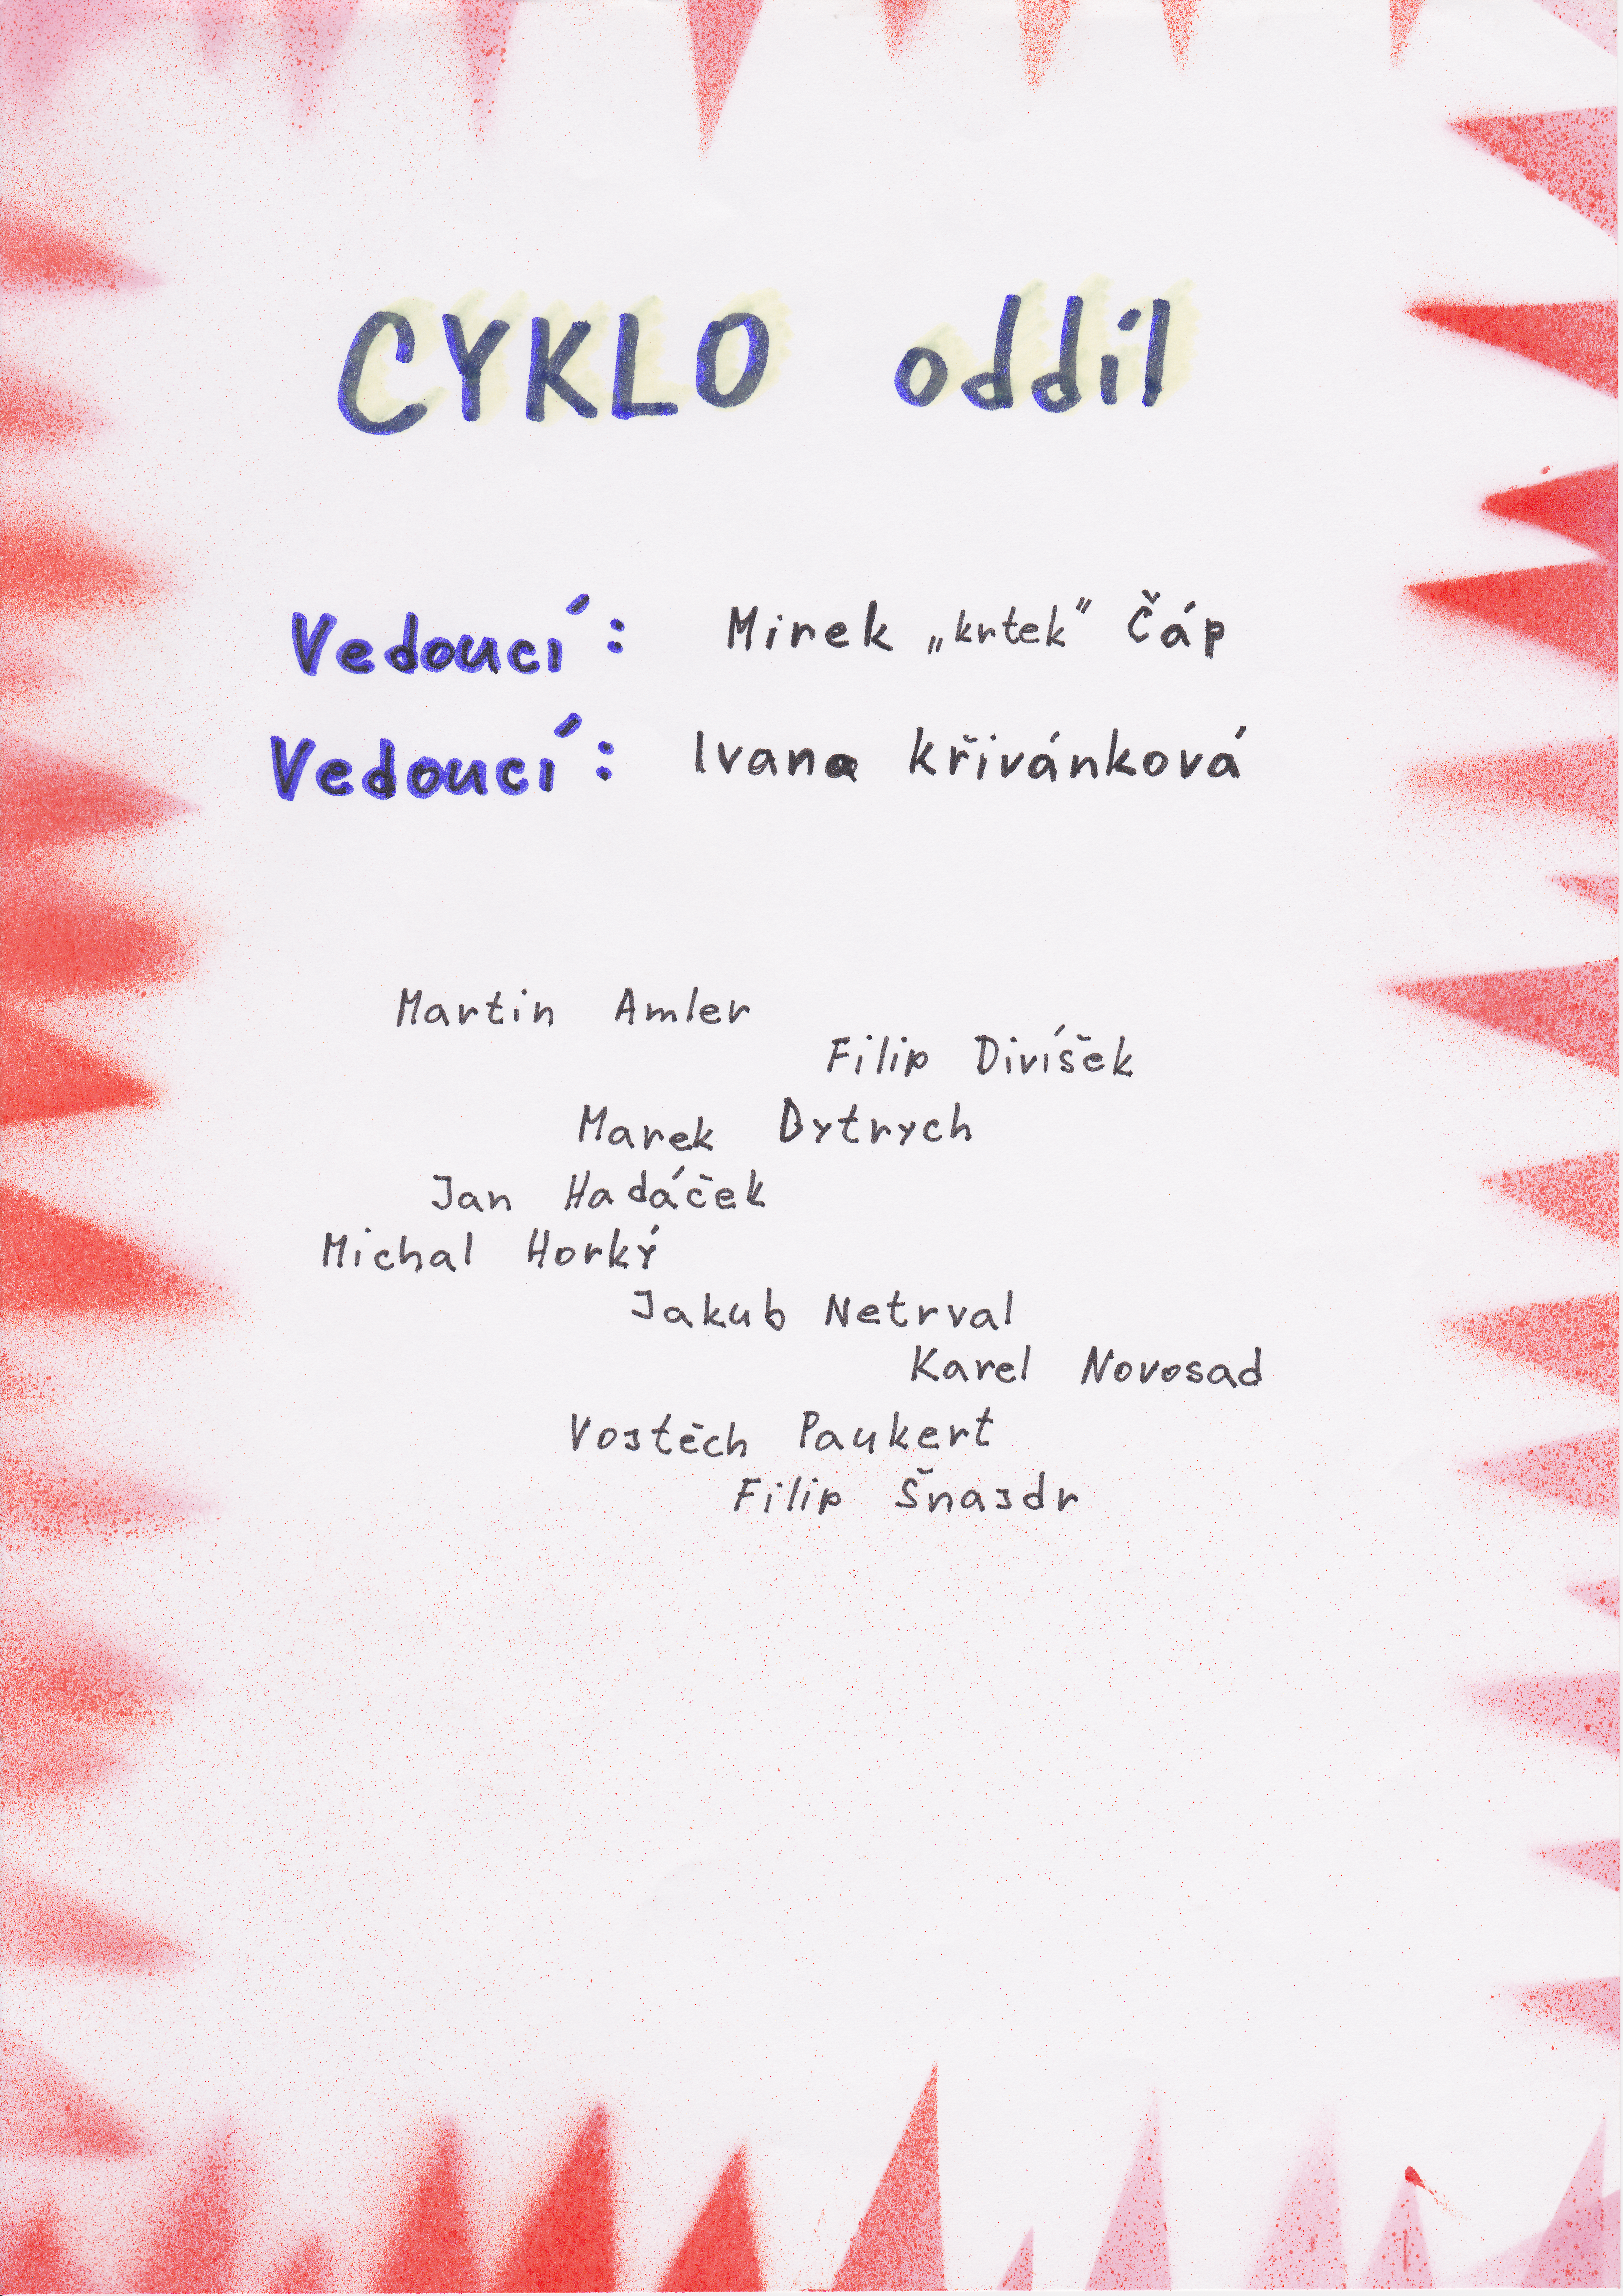 CYKLO oddíl
Vedoucí: Mirek „krtek" Čáp
Vedoucí: Ivana Křivánková
Martin Amler
Filip Divíšek
Marek Dytrych
Jan Hadáček
Michal Horký
Jakub Netrval
Karel Novosad
Vojtěch Paukert
Filip Šnajdr